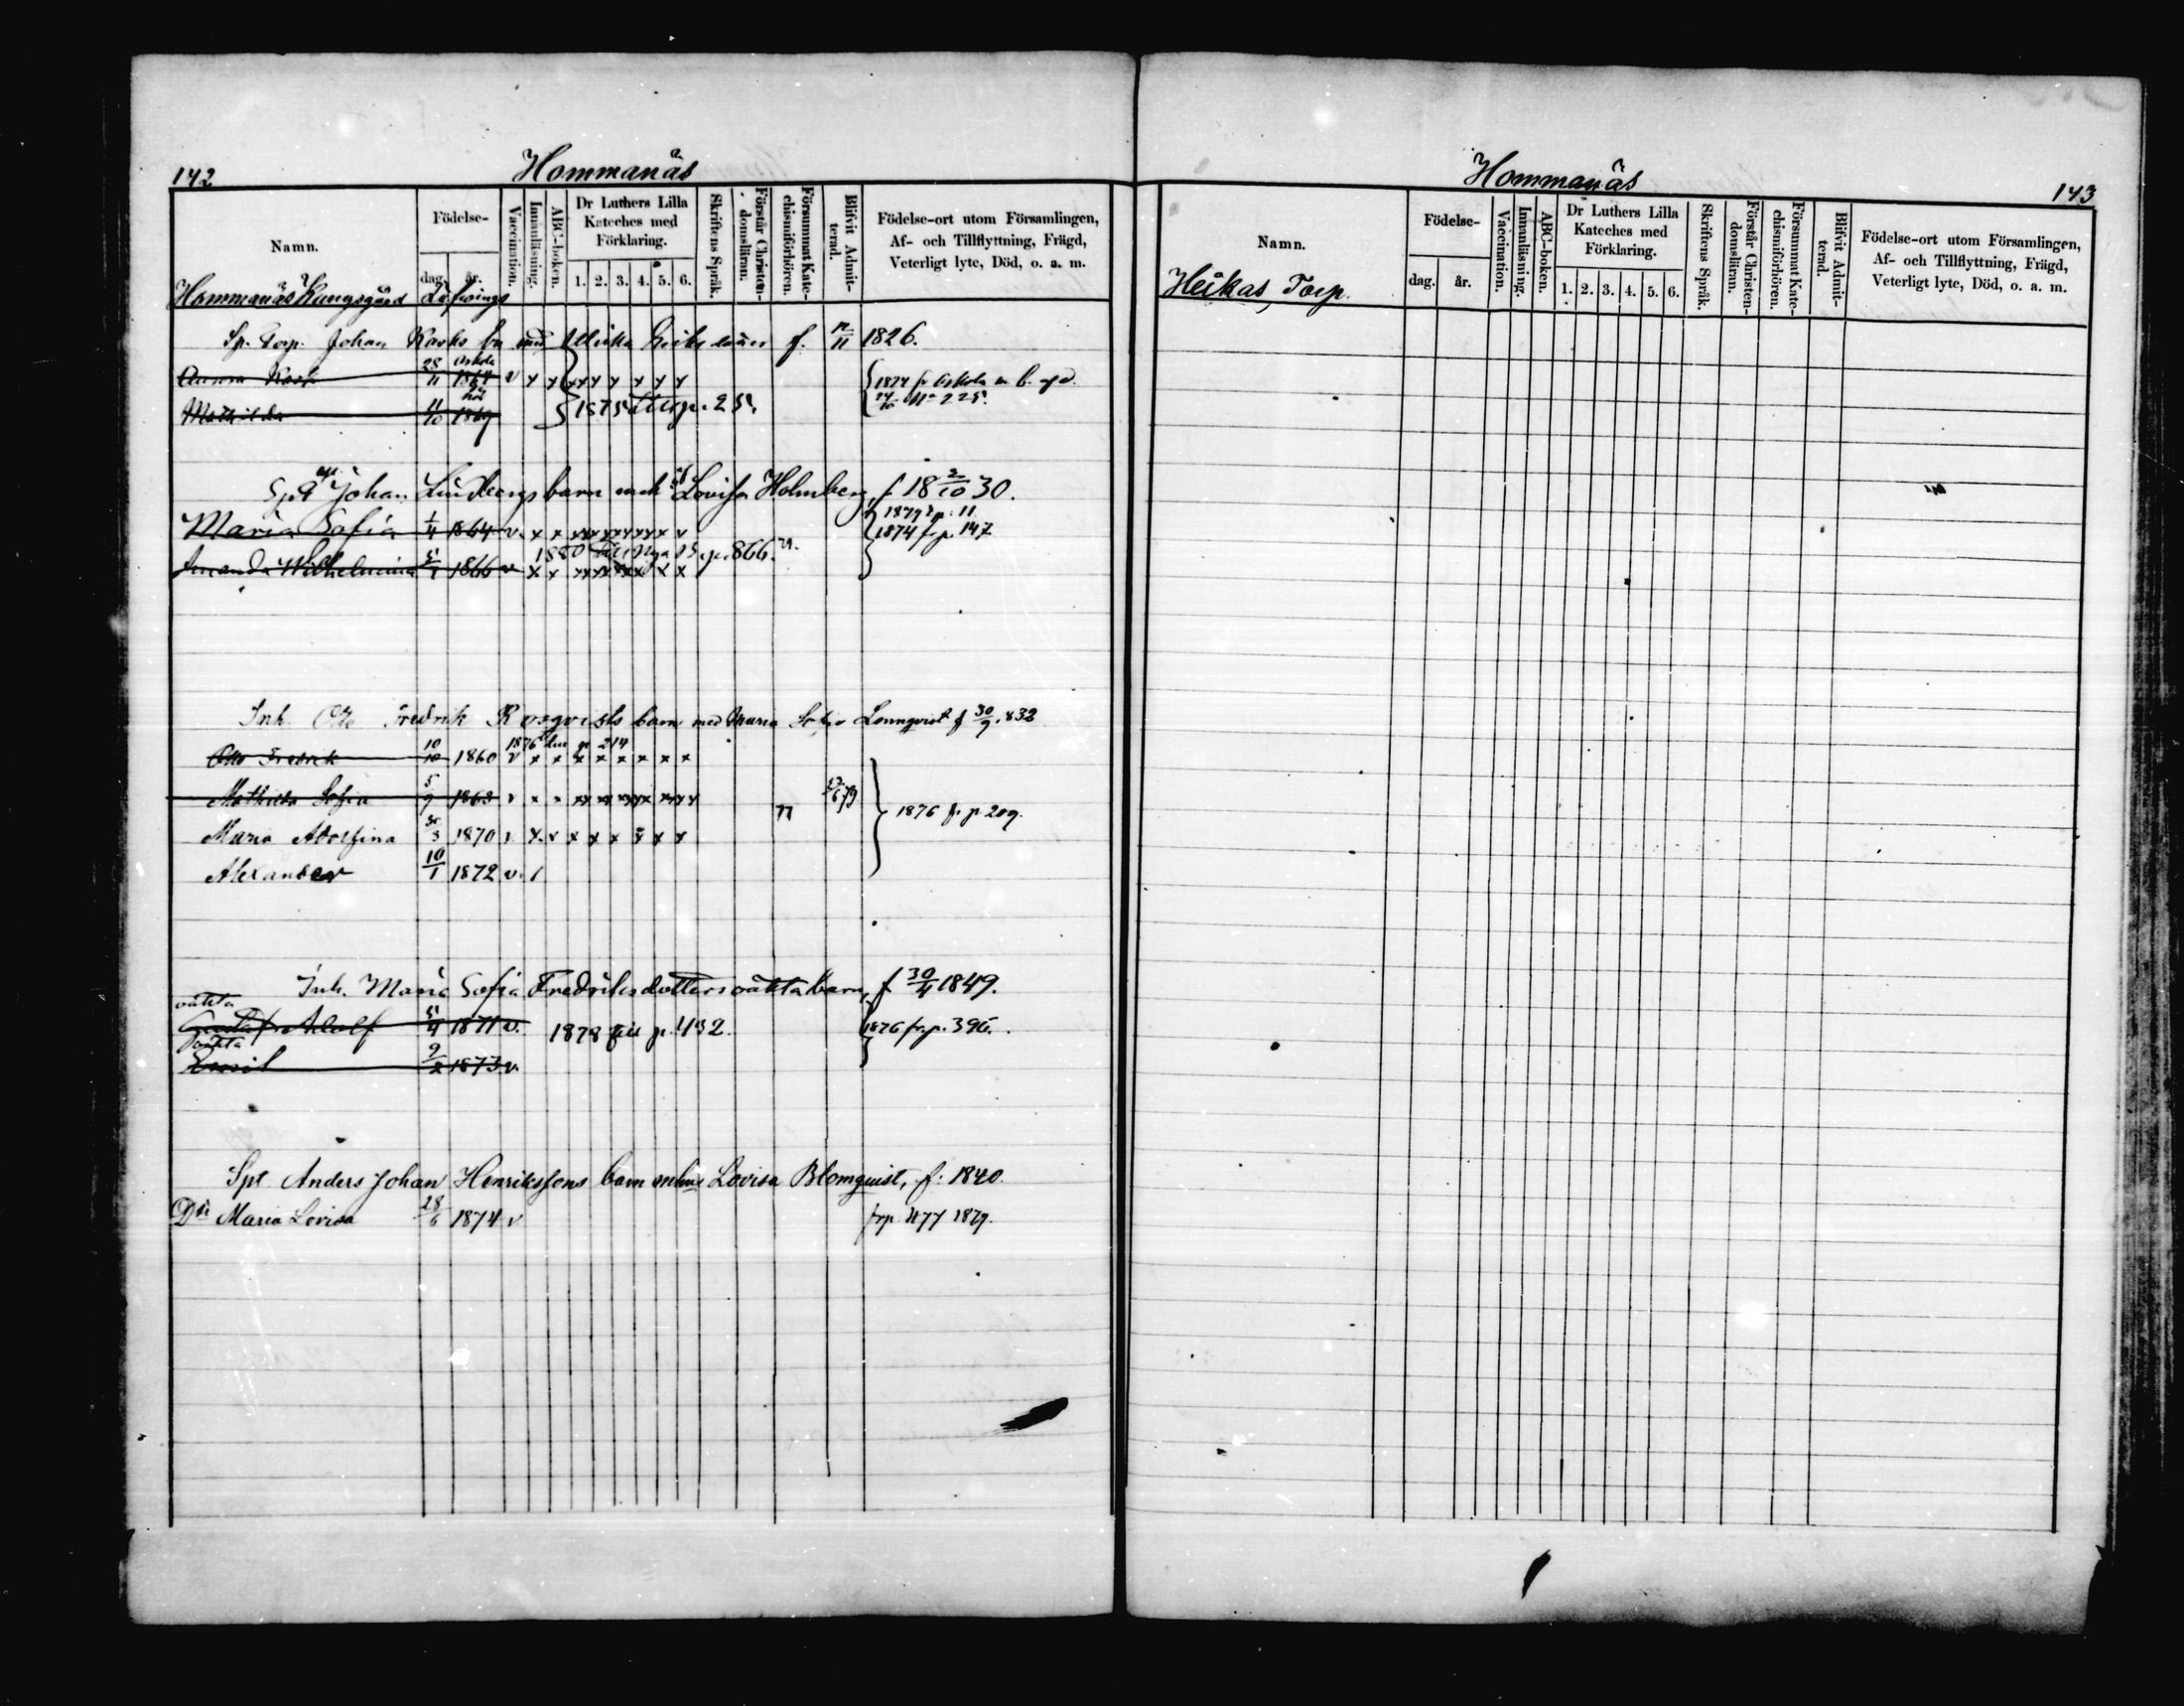 142 Hommanäs
Namn. Födelse- dag. år. Vaccination. Innanläsning. ABC-boken. Dr Luthers Lilla Kateches med Förklaring. 1. 2. 3. 4. 5. 6. Skriftens Språk. Förstår Christendomsläran. Försummat Katechismiförhören. Blifvit Admitterad. Födelse-ort utom Församlingen, Af- och Tillflyttning, Frägd, Veterligt lyte, Död, o. a. m.
Hommanäs Kungsgård
Sp. Torp. Johan f. 12/11 1826.
Anna 28/11 Askola 1864 v x x x x x x x x { 1874 fr Askola
Mathilda 11/10 1869 } 1875 p. 25. 24/10 No 225.
Johan Lindbergs barn med Lovisa Holmberg, f 18 2/10 30.
1879 p. 11
Maria Sofia 1/4 1864 v. x x x x x x x x 1874 fr. p. 147
1880 p. 866.
Amanda Wilhelmina 1866 v x x x x x x x x
Inh. Otto Fredrik Rosqvists barn med Maria Sofia Lönnqvist f 30/9 1832
1876 p 214
Otto Fredrik 10/10 1860 v x x x x x x x x
Mathilda Sofia 5/9 1863 v x x xx xx xxx xxxx 79
Maria Adolfina 30/3 1870 v x x x x x x x x } 1876 fr p 209.
Alexander 10/1 1872 v. /
Inh. Maria Sofia Fredriksdotters oäkta barn, f 30/4 1849.
oäkta
Gustaf Adolf 5/4 1871 v. 1878 till p. 432. 1876 fr. p. 396.
oäkta
Emil 9/2 1873 v.
Anders Johan Henrikssons barn m hu Lovisa Blomquist, f: 1840.
Dr Maria Lovisa 28/6 1874 v fr p. 477 1879.
Hommanäs 143
Namn. Födelse- dag. år. Vaccination. Innanläsning. ABC-boken. Dr Luthers Lilla Kateches med Förklaring. 1. 2. 3. 4. 5. 6. Skriftens Språk. Förstår Christendomsläran. Försummat Katechismiförhören. Blifvit Admitterad. Födelse-ort utom Församlingen, Af- och Tillflyttning, Frägd, Veterligt lyte, Död, o. a. m.
Heikas, Torp.